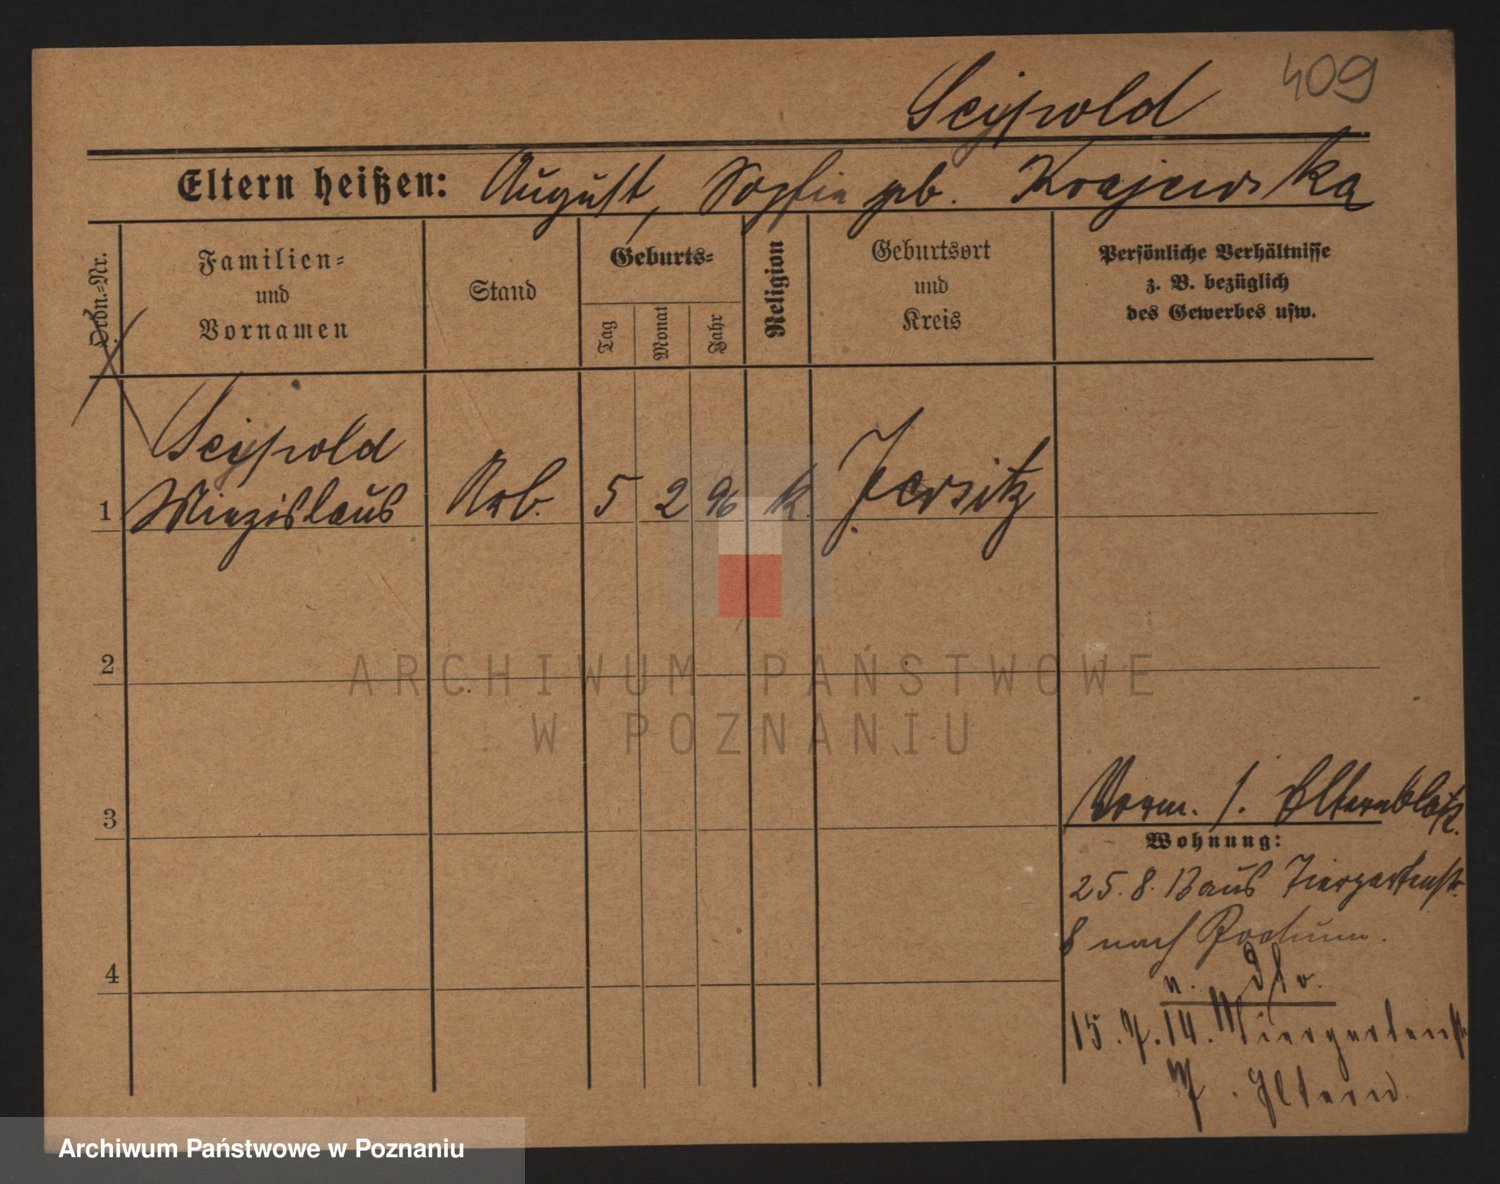 409
Seypold
Eltern heißen: August, Sophie geb. Krajewska
Ordn.-Nr.
Familien-
und
Vornamen
Stand
Geburts-
Tag
Monat
Jahr
Religion
Geburtsort
und
Kreis
Persönliche Verhältnisse
z. B. bezüglich
des Gewerbes usw.
Seypold
1 Miezislaus Arb. 5 2 96 k. Jersitz
2
ARCHIWUM PAŃSTWOWE
W POZNANIU
3
4
Vorm. s. Elternblatt.
Wohnung:
25. 8. 13 aus Tiergartenstr.
8 nach Bochum.
n. dto.
15. 7. 14. Tiergartenstr
Eltern.
Archiwum Państwowe w Poznaniu